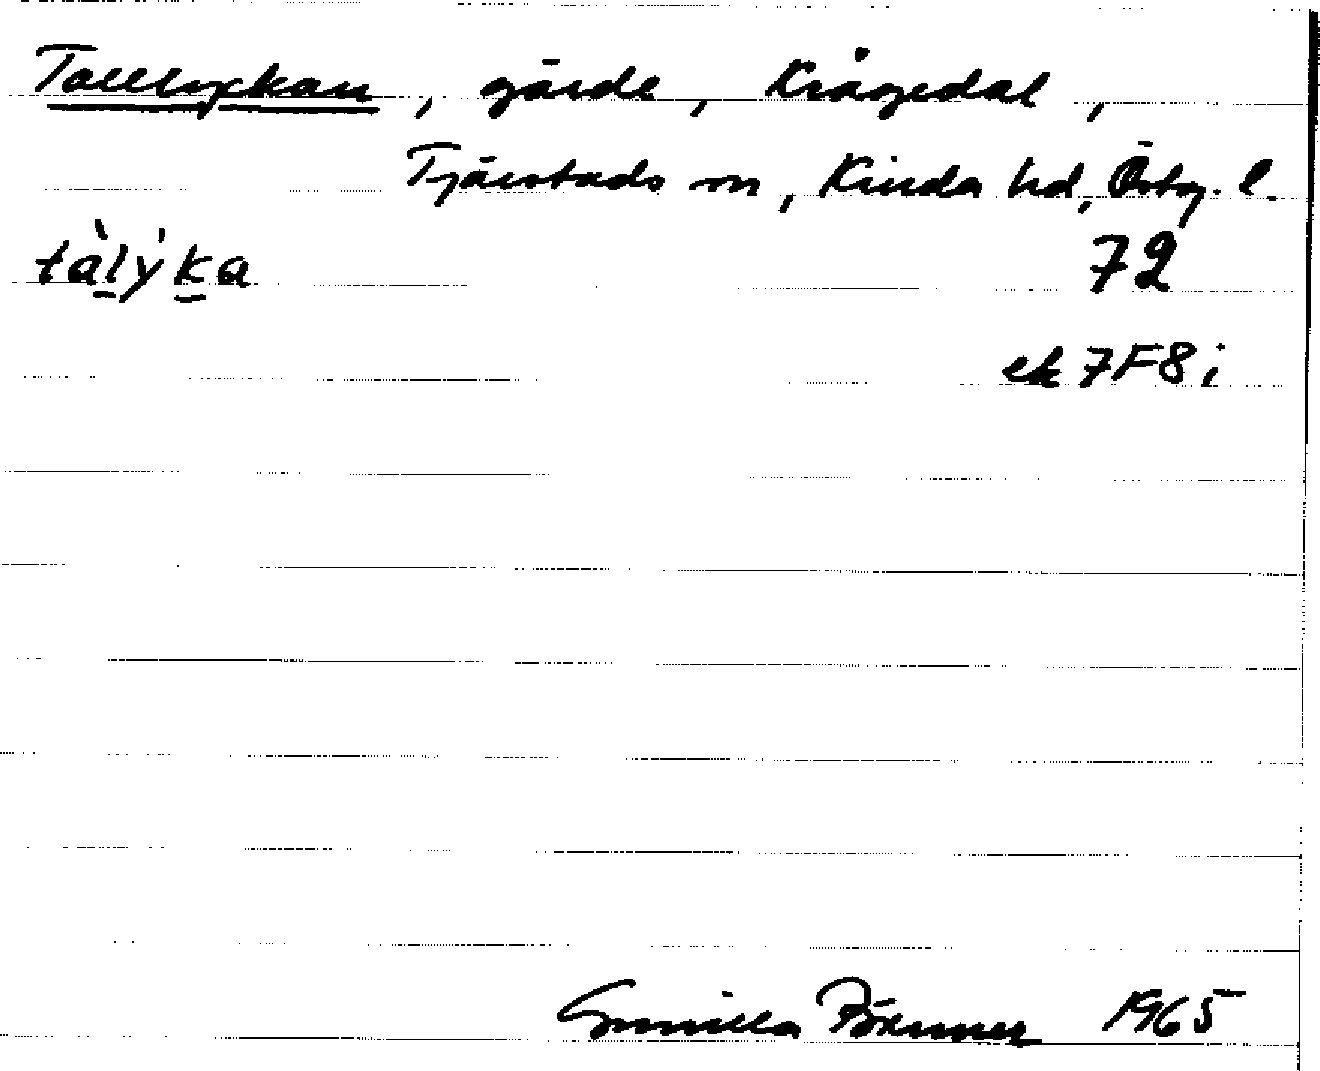 Talllyckan, gärde, Krågedal,
Tjärstads sn, Kinda hd, Östg. l.
tàlỳka 72
ek 7F8i
Gunilla 1965